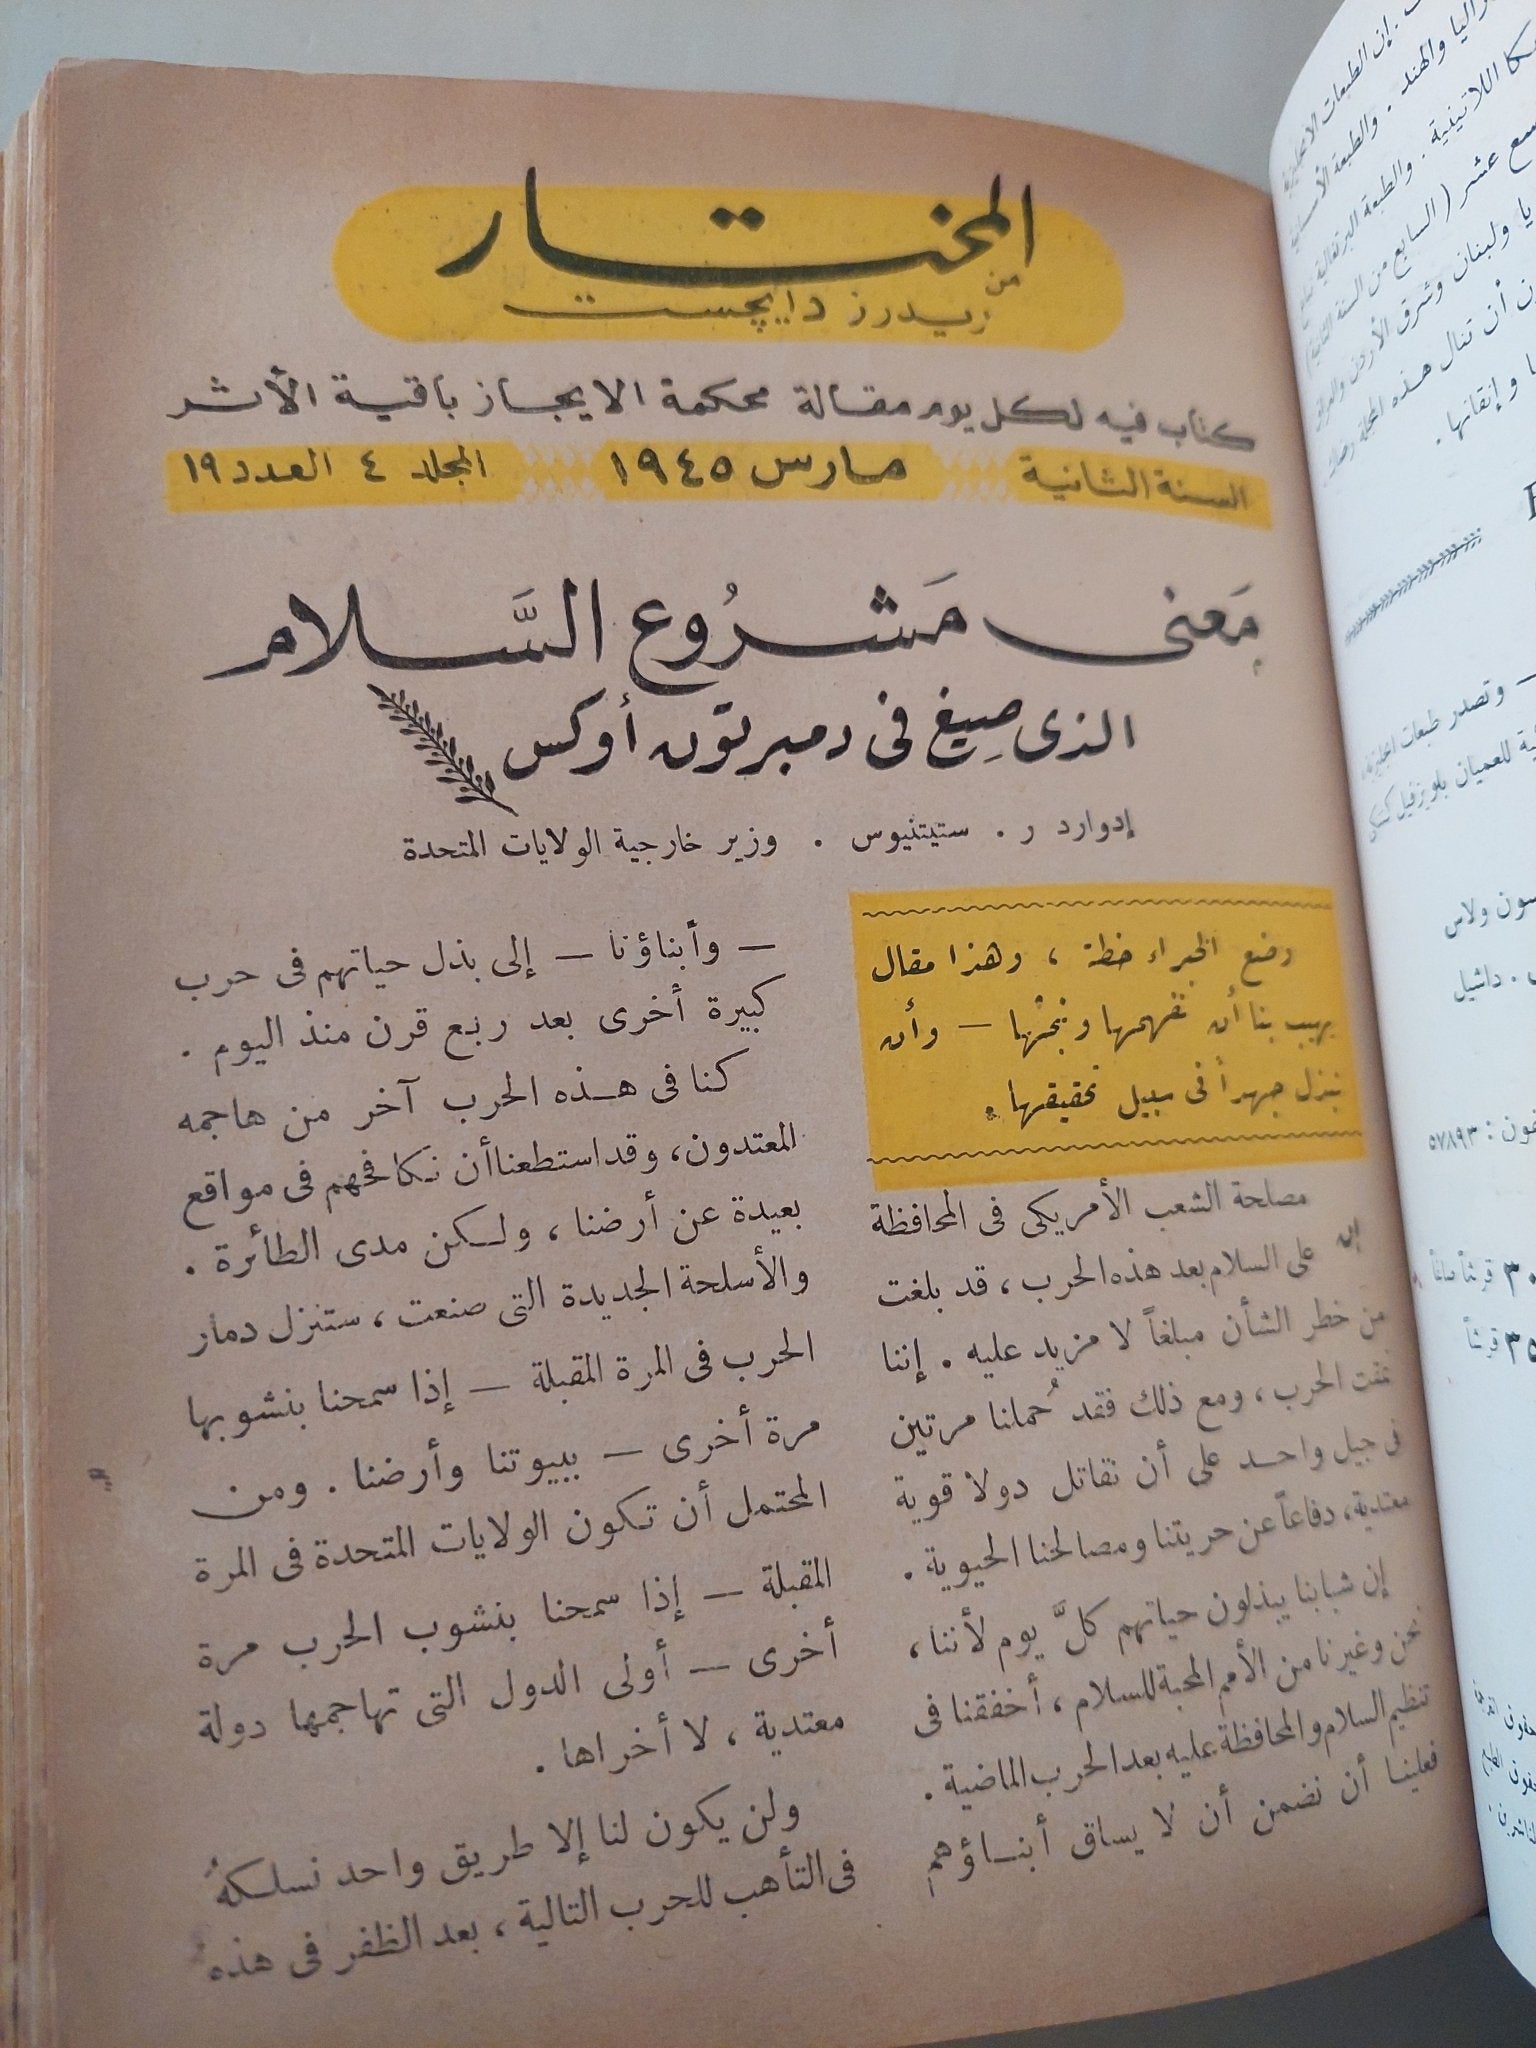 المختار
من
ريدرز دايجست
كتاب فيه لكل يوم مقالة محكمة الايجاز باقية الأثر
السنة الثانية مارس ١٩٤٥ المجلد ٤ العدد ١٩
معنى مَشرُوع السَّلام
الذى صِيغ فى دمبرتون أوكس
إدوارد ر. ستيتنيوس . وزير خارجية الولايات المتحدة
وضع الخبراء خطة ، وهذا مقال
يهيب بنا أن نفهمها ونبحثها — وأن
نبذل جهداً فى سبيل تحقيقها .
إن مصلحة الشعب الأمريكى فى المحافظة
على السلام بعد هذه الحرب ، قد بلغت
من خطر الشأن مبلغاً لا مزيد عليه . إننا
نمقت الحرب ، ومع ذلك فقد حُملنا مرتين
فى جيل واحد على أن نقاتل دولا قوية
معتدية، دفاعاً عن حريتنا ومصالحنا الحيوية .
إن شبابنا يبذلون حياتهم كلَّ يوم لأننا ،
نحن وغيرنا من الأمم المحبة للسلام ، أخفقنا فى
تنظيم السلام والمحافظة عليه بعد الحرب الماضية .
فعلينا أن نضمن أن لا يساق أبناؤهم
— وأبناؤنا — إلى بذل حياتهم فى حرب
كبيرة أخرى بعد ربع قرن منذ اليوم .
كنا فى هذه الحرب آخر من هاجمه
المعتدون، وقد استطعنا أن نكافحهم فى مواقع
بعيدة عن أرضنا ، ولكن مدى الطائرة .
والأسلحة الجديدة التى صنعت ، ستنزل دمار
الحرب فى المرة المقبلة — إذا سمحنا بنشوبها
مرة أخرى — ببيوتنا وأرضنا . ومن
المحتمل أن تكون الولايات المتحدة فى المرة
المقبلة — إذا سمحنا بنشوب الحرب مرة
أخرى — أولى الدول التى تهاجمها دولة
معتدية ، لا أخراها .
ولن يكون لنا إلا طريق واحد نسلكه
فى التأهب للحرب التالية ، بعد الظفر فى هذه
إن الطبعات الانجليزية
والهند . والطبعة
اللاتينية . والطبعة البرتغالية
عشر (السابع من السنة الثانية)
ولبنان وشرق الأردن
أن تنال هذه المجلة
وإتقانها .
— وتصدر طبعات
للعميان بلويزفيل كنتكى
ولاس
. داشيل
: ٥٧٨٩٣
٣٠ قرشاً صاغاً
٣٥ قرشاً